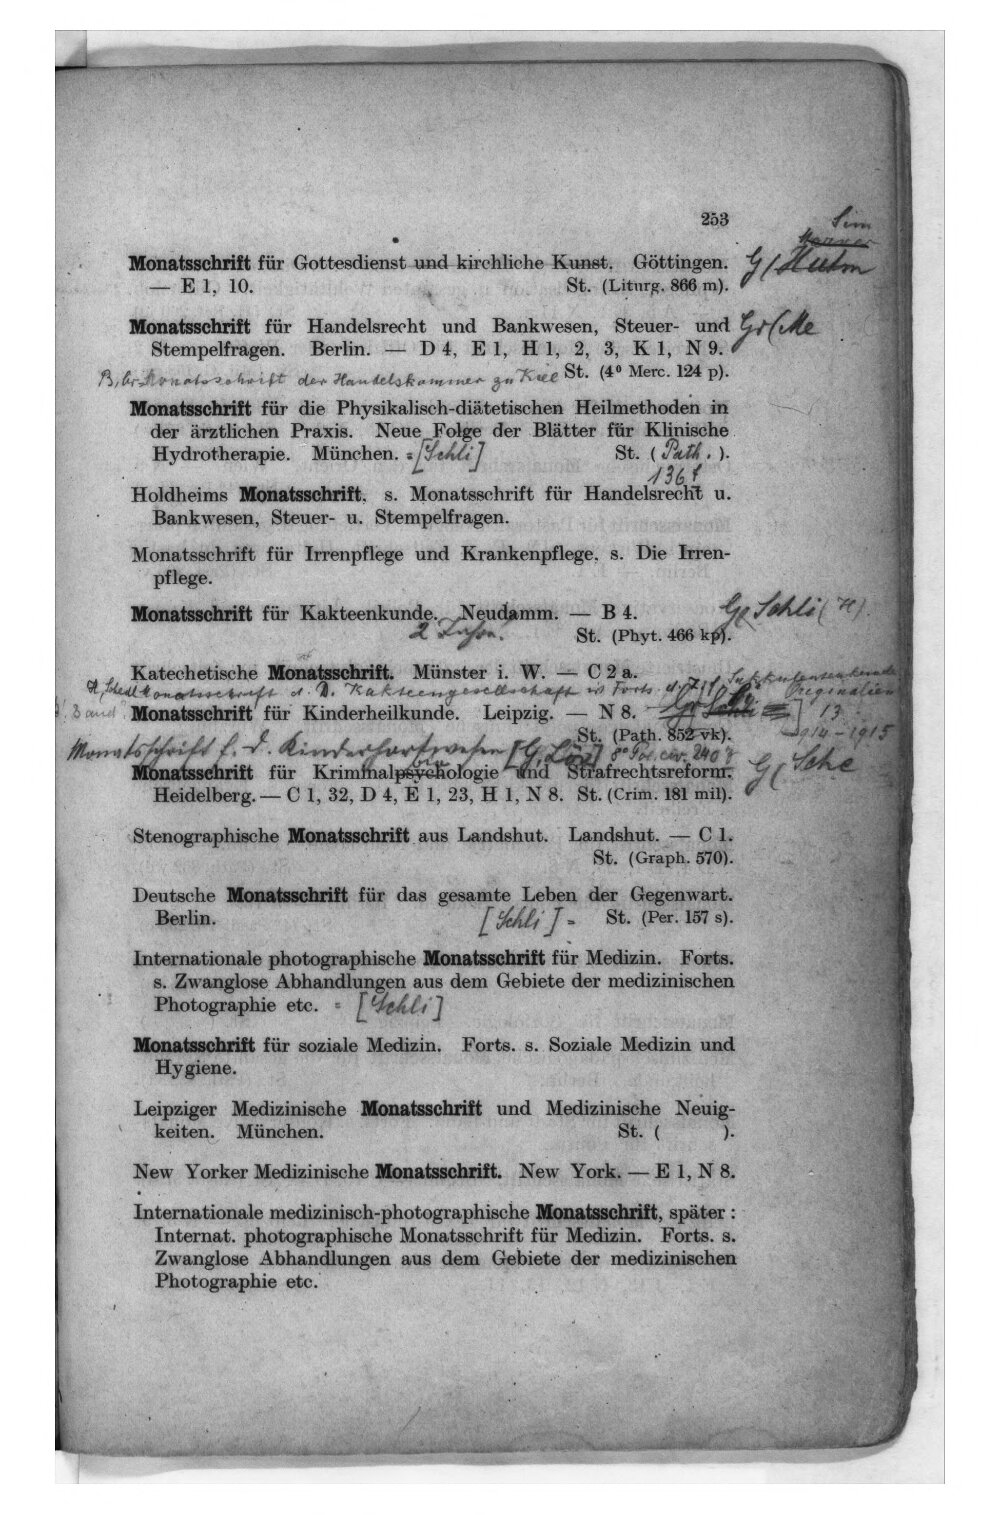 253
Sim
Monatsschrift für Gottesdienst und kirchliche Kunst. Göttingen.
— E 1, 10. St. (Liturg. 866 m).
Monatsschrift für Handelsrecht und Bankwesen, Steuer- und
Stempelfragen. Berlin. — D 4, E 1, H 1, 2, 3, K 1, N 9.
Monatsschrift der Handelskammer zu Kiel St. (4⁰ Merc. 124 p).
Monatsschrift für die Physikalisch-diätetischen Heilmethoden in
der ärztlichen Praxis. Neue Folge der Blätter für Klinische
Hydrotherapie. München. = [Schli] St. (Path. ).
136 f
Holdheims Monatsschrift, s. Monatsschrift für Handelsrecht u.
Bankwesen, Steuer- u. Stempelfragen.
Monatsschrift für Irrenpflege und Krankenpflege, s. Die Irren-
pflege.
Monatsschrift für Kakteenkunde. Neudamm. — B 4. Schli
St. (Phyt. 466 kp).
Katechetische Monatsschrift. Münster i. W. — C 2 a.
Monatsschrift d. D. Kakteengesellschaft
Monatsschrift für Kinderheilkunde. Leipzig. — N 8. 13
St. (Path. 852 vk). 1914-1915
Monatsschrift f. d.
Monatsschrift für Kriminalpsychologie und Strafrechtsreform.
Heidelberg. — C 1, 32, D 4, E 1, 23, H 1, N 8. St. (Crim. 181 mil).
Stenographische Monatsschrift aus Landshut. Landshut. — C 1.
St. (Graph. 570).
Deutsche Monatsschrift für das gesamte Leben der Gegenwart.
Berlin. [Schli] = St. (Per. 157 s).
Internationale photographische Monatsschrift für Medizin. Forts.
s. Zwanglose Abhandlungen aus dem Gebiete der medizinischen
Photographie etc. = [Schli]
Monatsschrift für soziale Medizin. Forts. s. Soziale Medizin und
Hygiene.
Leipziger Medizinische Monatsschrift und Medizinische Neuig-
keiten. München. St. ( ).
New Yorker Medizinische Monatsschrift. New York. — E 1, N 8.
Internationale medizinisch-photographische Monatsschrift, später :
Internat. photographische Monatsschrift für Medizin. Forts. s.
Zwanglose Abhandlungen aus dem Gebiete der medizinischen
Photographie etc.